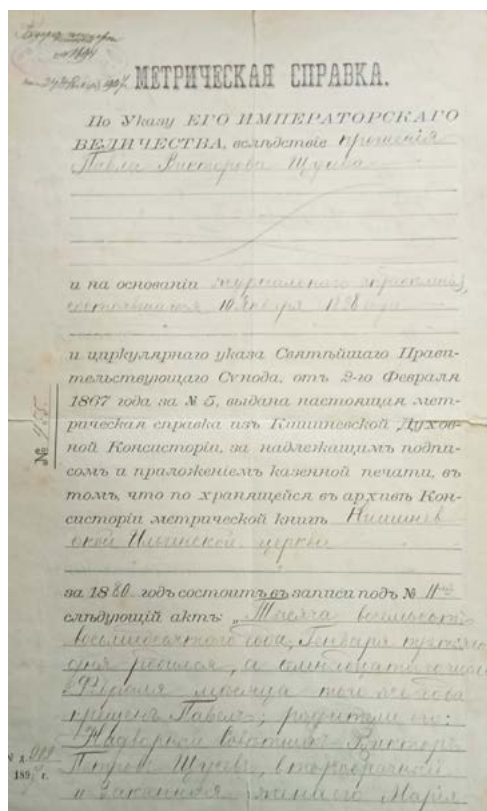 МЕТРИЧЕСКАЯ СПРАВКА.
По Указу ЕГО ИМПЕРАТОРСКАГО
ВЕЛИЧЕСТВА, вслѣдствіе прошенія
Павла Викторова Щусева
и на основаніи журнальнаго
состоявшагося 10 Января 1898 года
и циркулярнаго указа Святѣйшаго Прави-
тельствующаго Сѵнода, отъ 2-го Февраля
1867 года за № 5, выдана настоящая мет-
рическая справка изъ Кишиневской Духов-
ной Консисторіи, за надлежащимъ подпи-
сомъ и приложеніемъ казенной печати, въ
томъ, что по хранящейся въ архивѣ Кон-
систоріи метрической книгѣ Кишинев
ской Ильинской церкви
за 1880 годъ состоитъ въ записи подъ № 11
слѣдующій актъ: „Тысяча восемьсотъ
восьмидесятаго года, Генваря
дня родился, а семнадцатаго
Февраля мѣсяца того же года
крещенъ Павелъ; родители его:
Надворный Совѣтникъ Викторъ
Петровъ Щусевъ, второбрачный
и законная жена его Марія
№
№ д. 919
189 г.